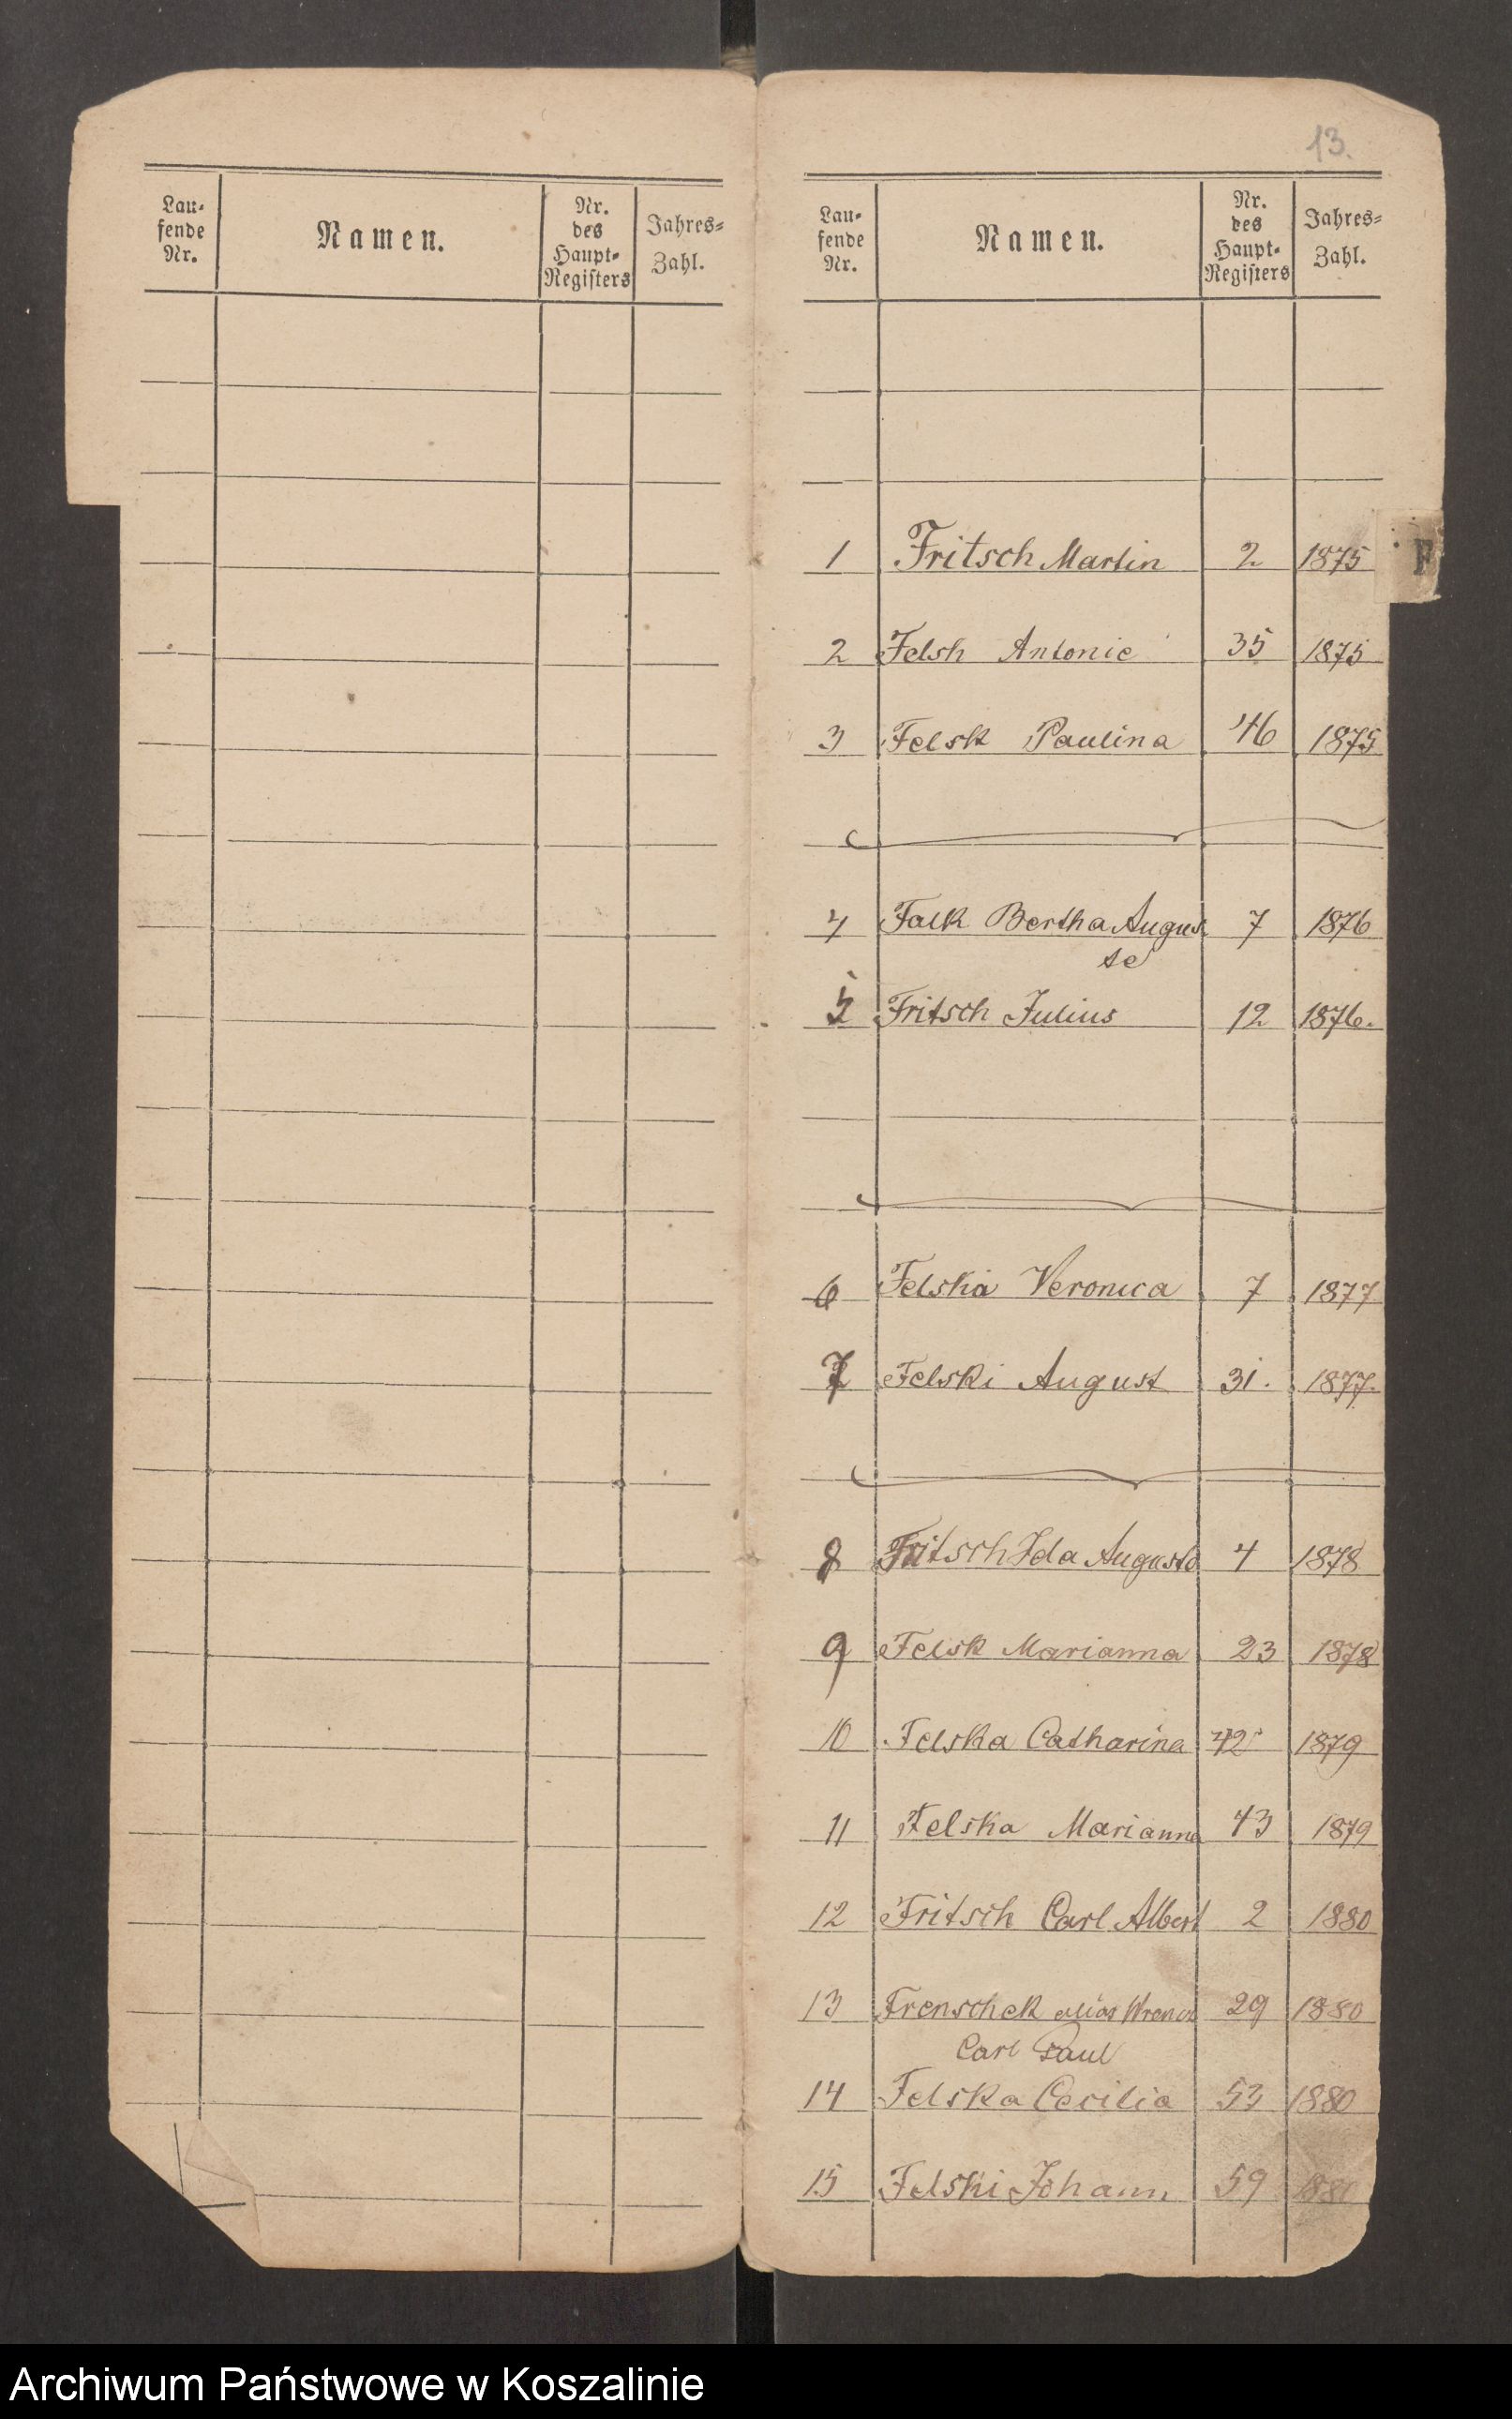 13.
Lau-
fende
Nr.
Namen.
Nr.
des
Haupt-
Registers
Jahres-
Zahl.
Lau-
fende
Nr.
Namen.
Nr.
des
Haupt-
Registers
Jahres-
Zahl.
1 Fritsch Martin 2 1875
F
2 Felsh Antonie 35 1875
3 Felsk Paulina 46 1875
4 Falk Bertha Augus 7 1876
te
5 Fritsch Julius 12 1876.
6 Felska Veronica 7 1877
7 Felski August 31. 1877.
8 Fritsch Ida Auguste 4 1878
9 Felsk Marianna 23 1878
10 Felska Catharina 42 1879
11 Felska Marianna 43 1879
12 Fritsch Carl Albert 2 1880
13 Frenschek alias 29 1880
Carl Paul
14 Felska Cecilia 53 1880
15 Felski Johann 59 1880
Archiwum Państwowe w Koszalinie